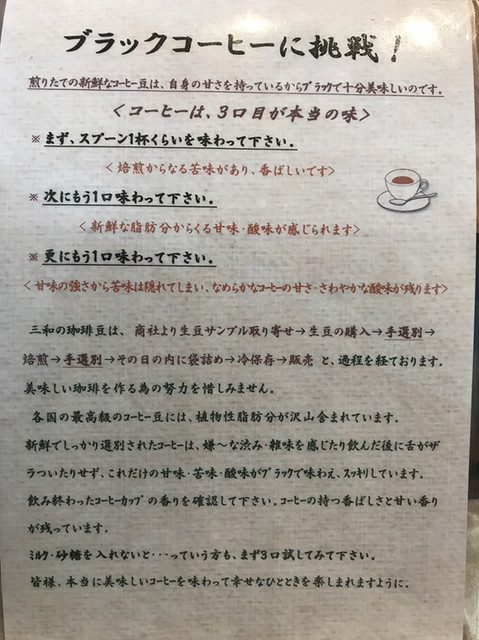 ブラックコーヒーに挑戦!
煎りたての新鮮なコーヒー豆は、自身の甘さを持っているからブラックで十分美味しいのです。
<コーヒーは、3口目が本当の味>
※ まず、スプーン1杯くらいを味わって下さい。
<焙煎からなる苦味があり、香ばしいです>
※ 次にもう1口味わって下さい。
<新鮮な脂肪分からくる甘味・酸味が感じられます>
※ 更にもう1口味わって下さい。
<甘味の強さから苦味は隠れてしまい、なめらかなコーヒーの甘さ・さわやかな酸味が残ります>
三和の珈琲豆は、商社より生豆サンプル取り寄せ→生豆の購入→手選別→
焙煎→手選別→その日の内に袋詰め→冷保存→販売 と、過程を経ております。
美味しい珈琲を作る為の努力を惜しみません。
各国の最高級のコーヒー豆には、植物性脂肪分が沢山含まれています。
新鮮でしっかり選別されたコーヒーは、嫌~な渋み・雑味を感じたり飲んだ後に舌がザ
ラついたりせず、これだけの甘味・苦味・酸味がブラックで味わえ、スッキリしています。
飲み終わったコーヒーカップの香りを確認して下さい。コーヒーの持つ香ばしさと甘い香り
が残っています。
ミルク・砂糖を入れないと・・・っていう方も、まず3口試してみて下さい。
皆様、本当に美味しいコーヒーを味わって幸せなひとときを楽しまれますように。